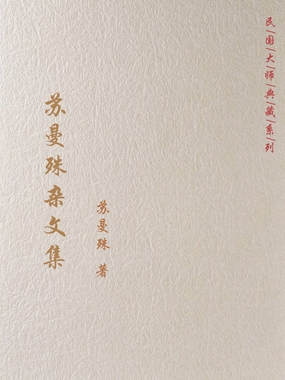 民国大师典藏系列
苏曼殊杂文集
苏曼殊 著